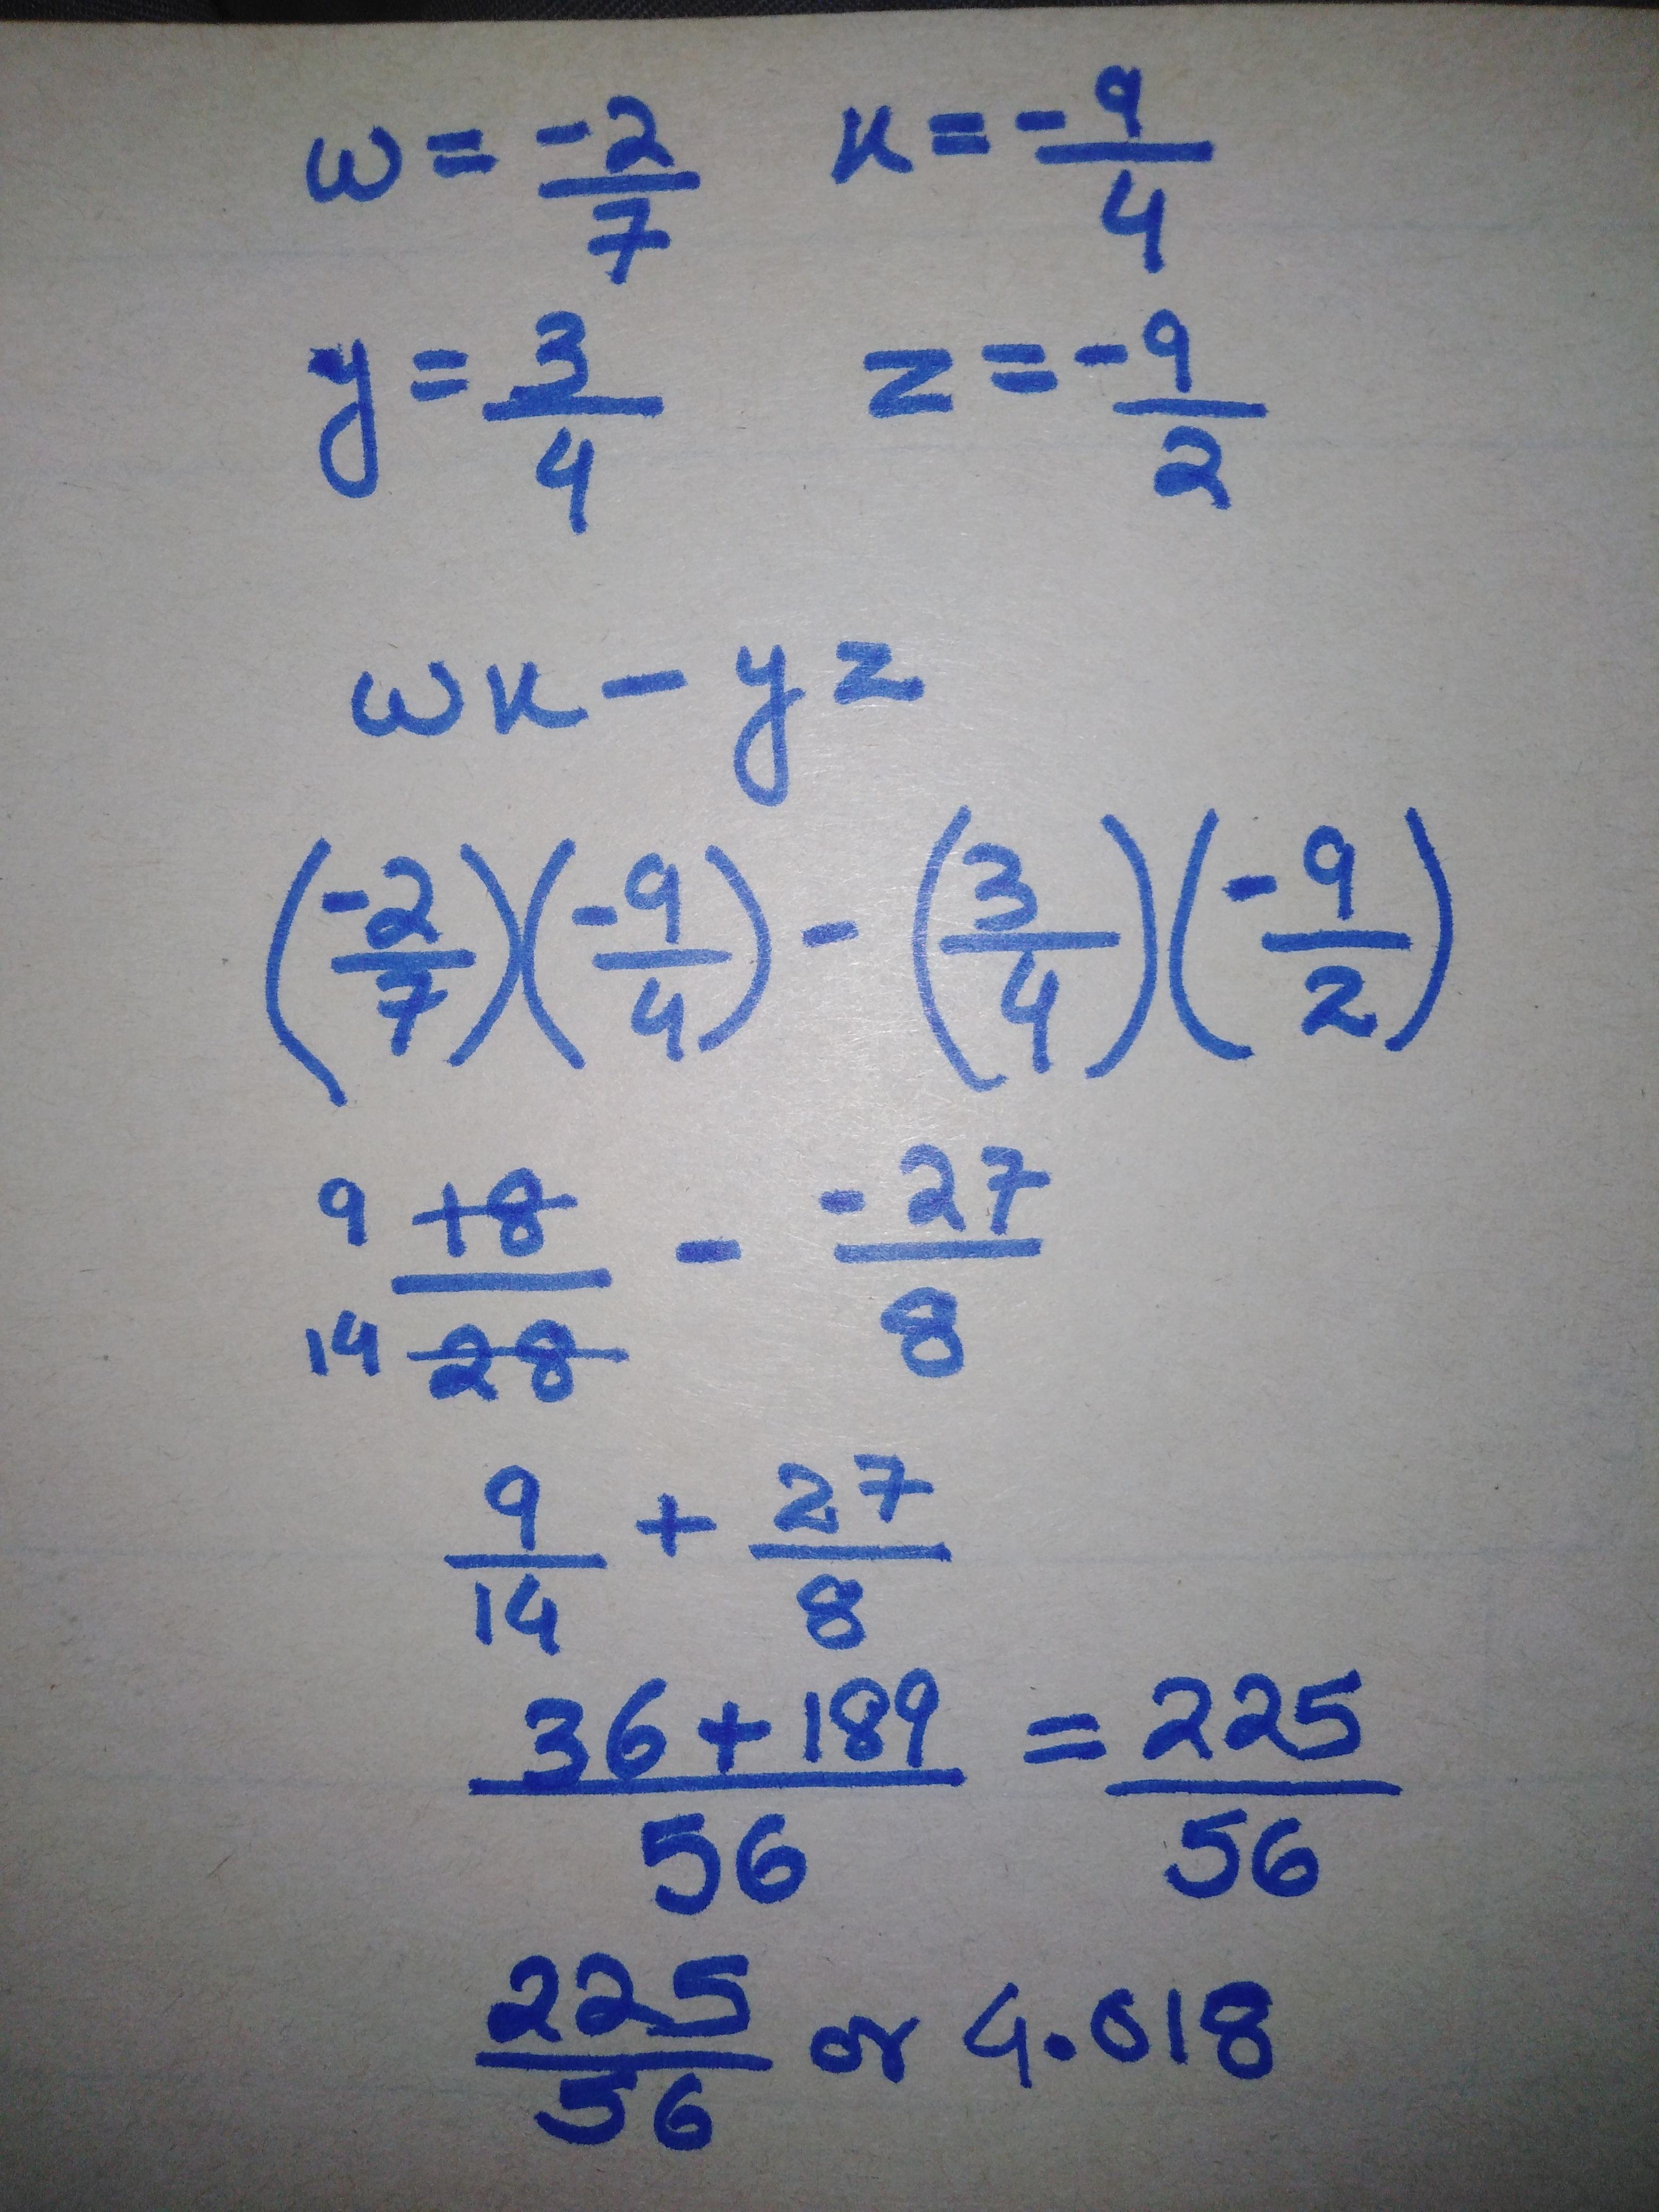 w = -2/7 x = -9/4
y = 3/4 z = -9/2
wx - yz
(-2/7)(-9/4) - (3/4)(-9/2)
9/14 +8/28 - -27/8
9/14 + 27/8
36 + 189/56 = 225/56
225/56 or 4.018